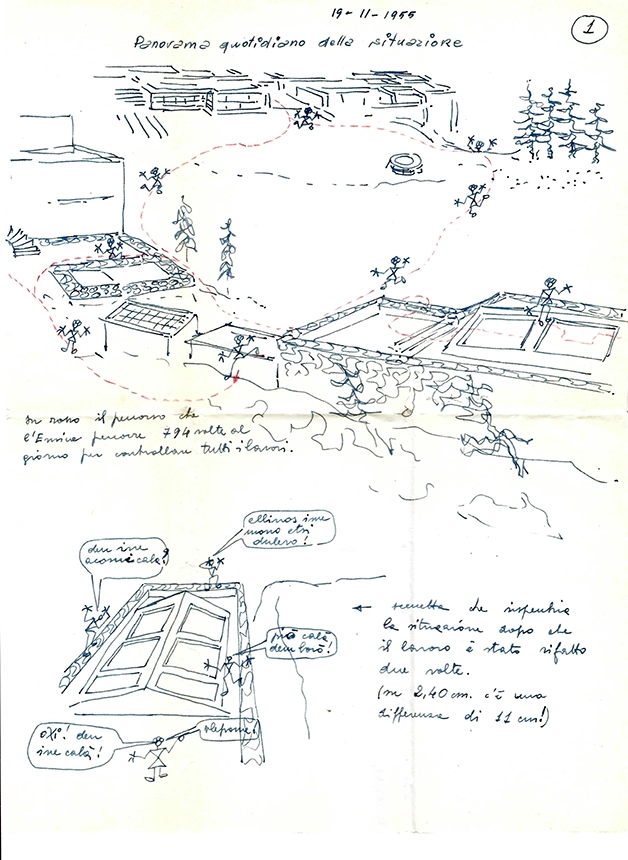 19-11-1955
1
Panorama quotidiano della situazione
in rosso il percorso che
l'Enrica percorre 794 volte al
giorno per controllare tutti i lavori.
ellinos ime
mono etsi
dulevo!
den ine
acomi calà!
più calà
den borò!
oxi! den
ine calà!
vlepome!
← scenetta che rispecchia
la situazione dopo che
il lavoro è stato rifatto
due volte.
(su 2,40 cm. c'è una
differenza di 11 cm!)